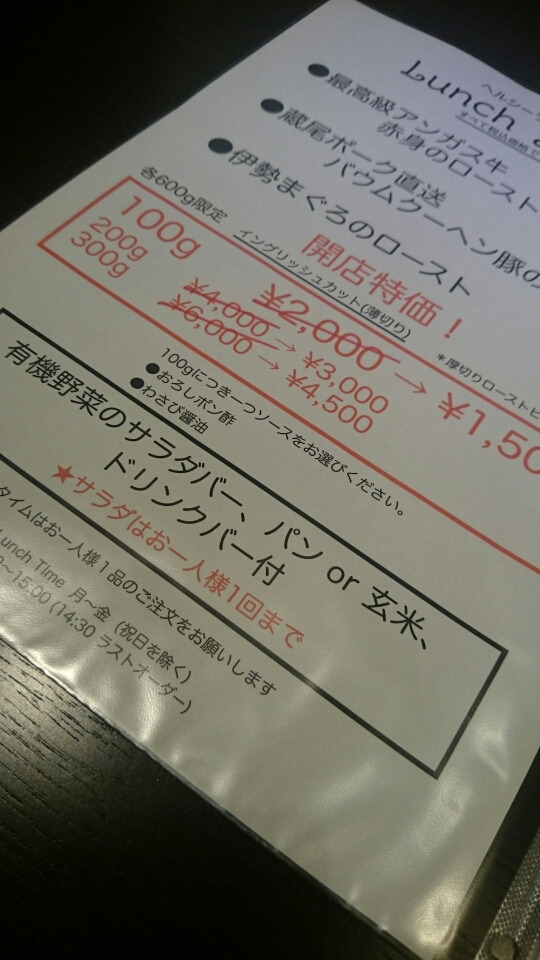 ヘルシー
Lunch
すべて税込価格で
●最高級アンガス牛
赤身のロースト
●蔵尾ポーク直送
バウムクーヘン豚の
●伊勢まぐろのロースト
各600g限定
開店特価！
イングリッシュカット(薄切り)
＊厚切りロースト
100g ¥2,000 → ¥1,50
200g ¥4,000 → ¥3,000
300g ¥6,000 → ¥4,500
100gにつき一つソースをお選びください。
●おろしポン酢
●わさび醤油
有機野菜のサラダバー、パン or 玄米、
ドリンクバー付
★サラダはお一人様1回まで
タイムはお一人様１品のご注文をお願いします
Lunch Time 月～金 (祝日を除く)
～15:00 (14:30 ラストオーダー)